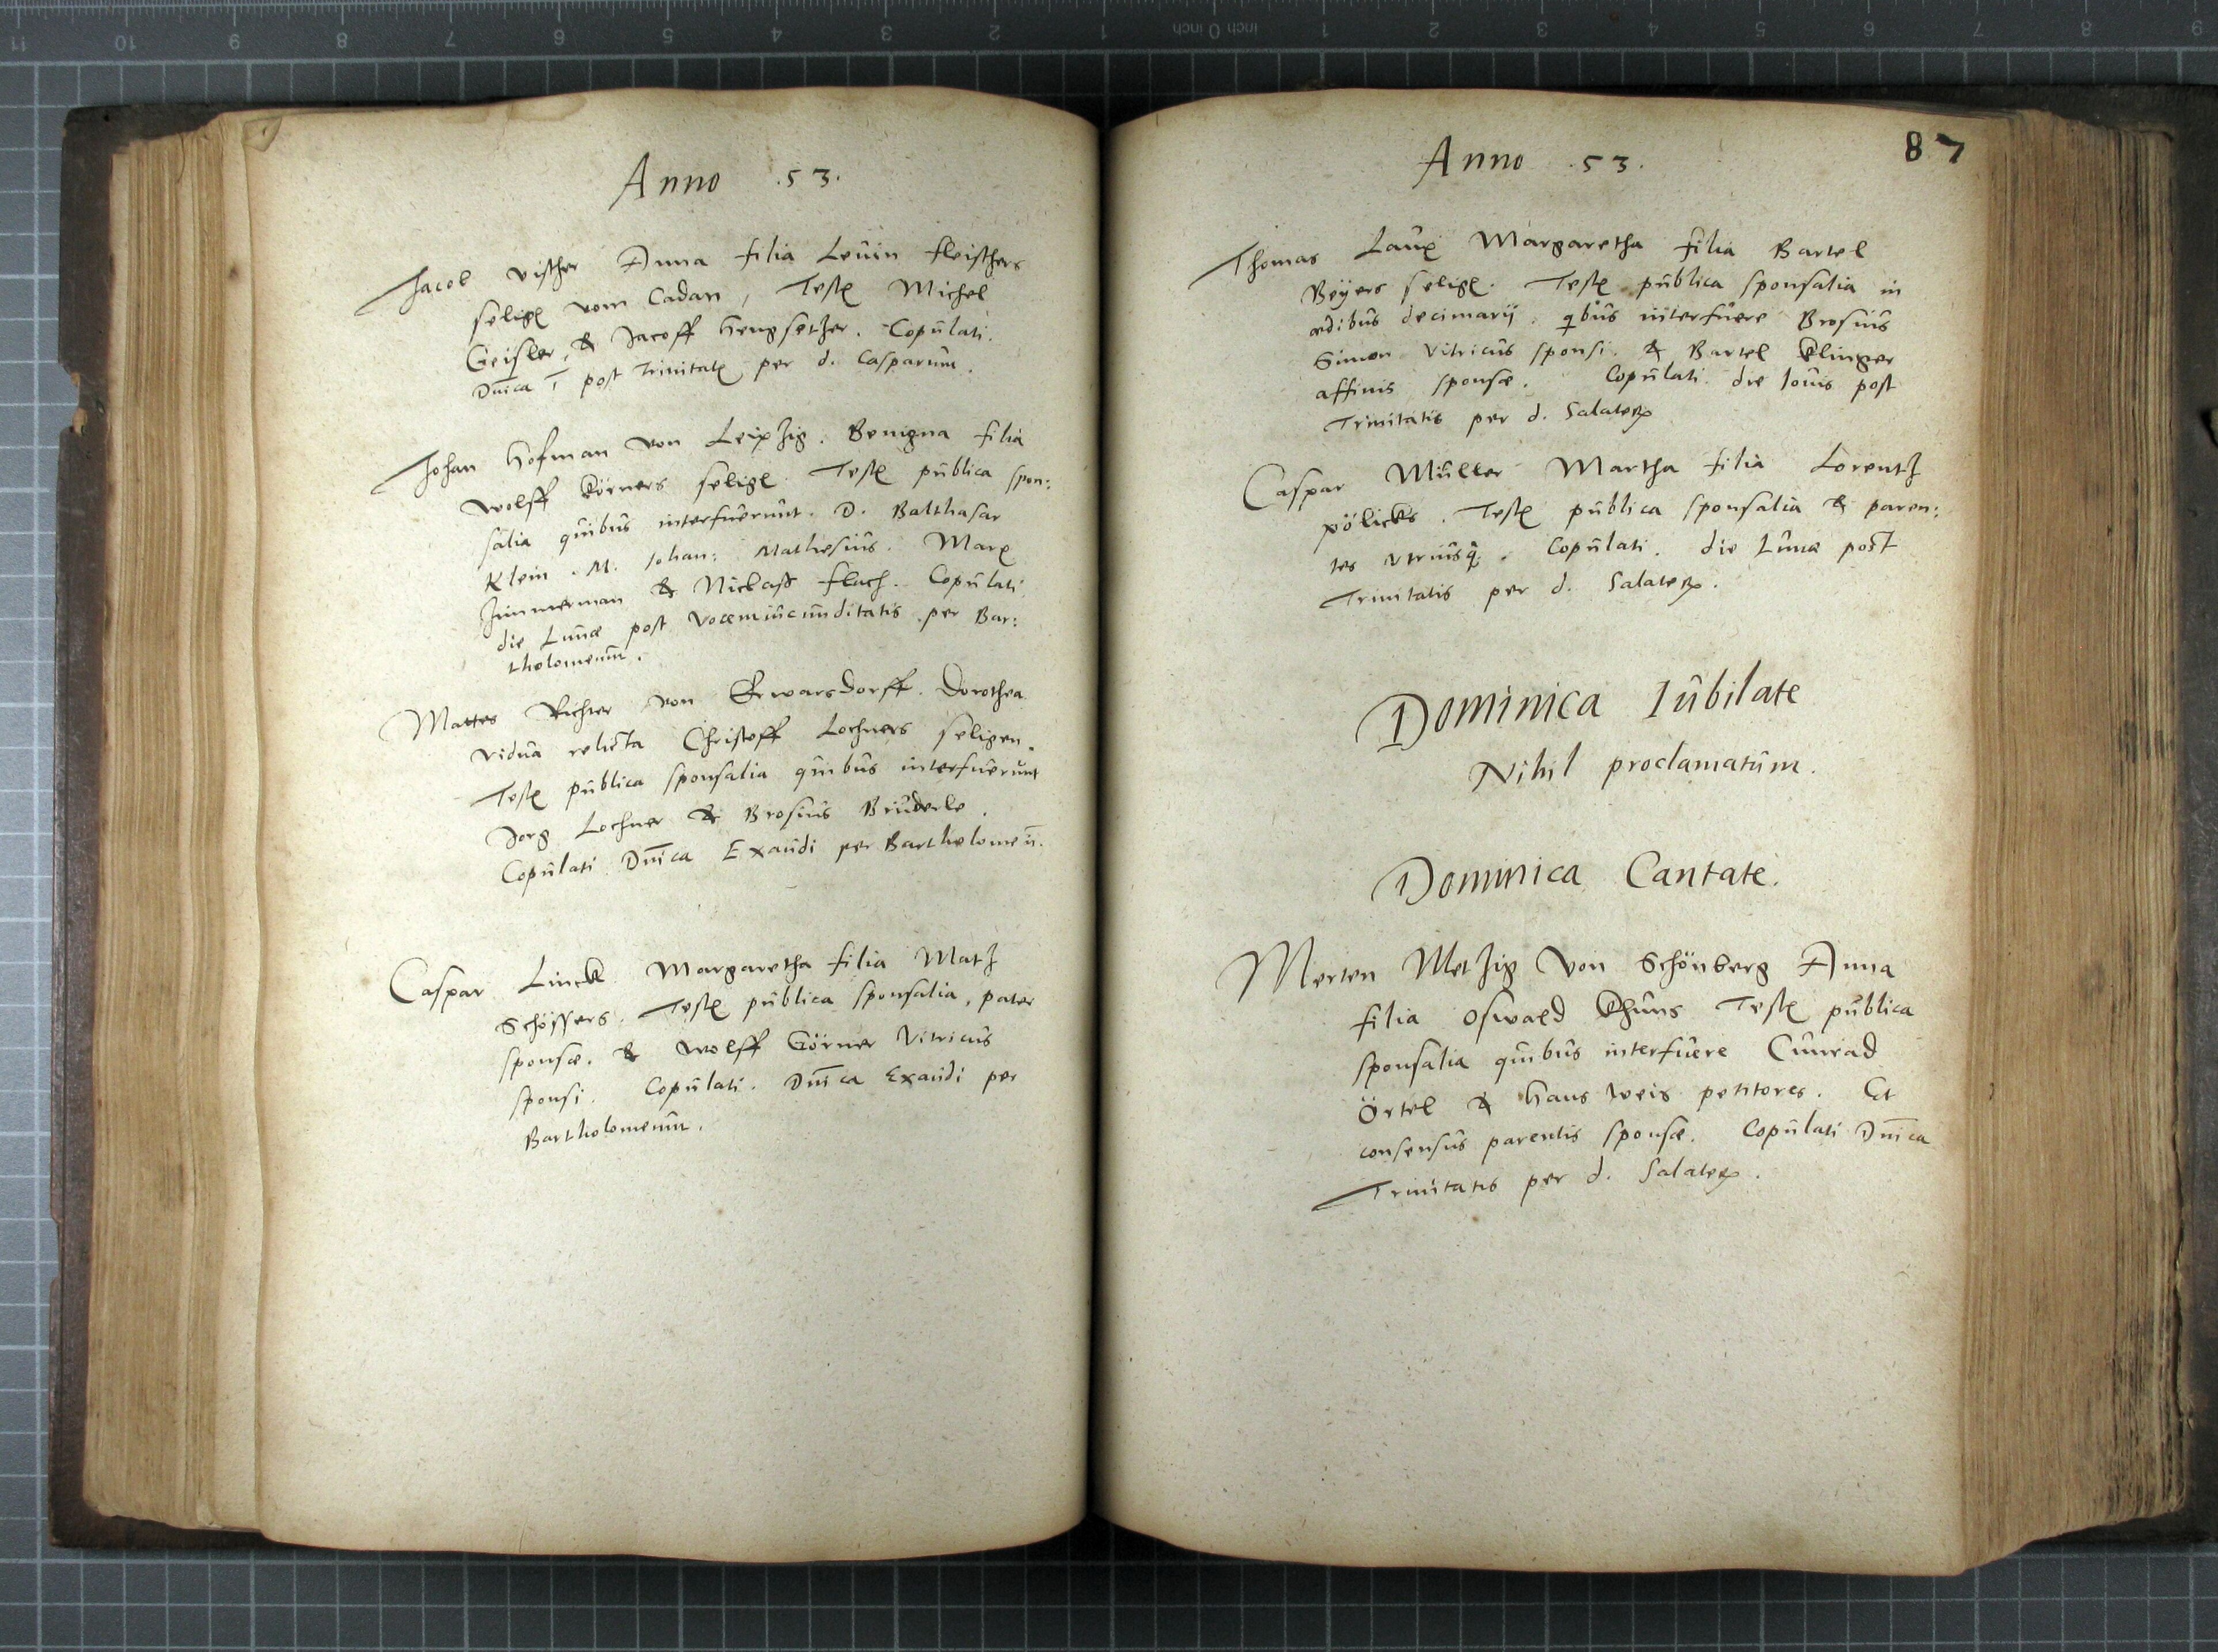 Anno .53.
Jacob vischer Anna filia Leuin fleischers
selige vom Cadan, Teste Michel
Geisler, & Jacoff hengsetzer. Copulati.
Dnica 1 post Trinitate per d. Casparum.
Johan Hofman von Leipzig. Benigna filia
Wolff Körners selige. Teste publica spon:
salia quibus interfuerunt. D. Balthasar
Klein. M. Johan: Mathesius. Marx
Zimmerman & Nickass flach. Copulati.
die Lunæ post vocem iucunditatis per Bar:
tholomeum.
Mattes Richter von Dorothea
vidua relicta Christoff Lochners seligen.
Teste publica sponsalia quibus interfuerunt
Jorg Lochner & Brosius Bruderle.
Copulati. Dnica Exaudi per Bartholomeū.
Caspar Linck Margaretha filia Matz
Schössers. Teste publica sponsalia, pater
sponsæ. & Wolff Görner Vitricus
sponsi. Copulati. Dnica Exaudi per
Bartholomeum.
87
Anno .53.
Thomas Laux Margaretha filia Bartel
Beÿers selige. Teste publica sponsalia in
ædibus decimarij. qbus interfuere Brosius
Simon Vitricus sponsi. & Bartel Klinger
affinis sponsæ. Copulati. die Iouis post
Trinitatis per d. Salater
Caspar Müller Martha filia Lorentz
pölicks. Teste publica sponsalia & paren:
tes vtriusq. Copulati. die Lunæ post
Trinitatis per d. Salater.
Dominica Iubilate
Nihil proclamatum.
Dominica Cantate.
Merten Metzig von Schönberg Anna
filia Oswald Khuns Teste publica
sponsalia quibus interfuere Cunrad
Örtel & Hans Weis petitores. Et
consensus parentis sponsæ. Copulati Dnica
Trinitatis per d. Salater.